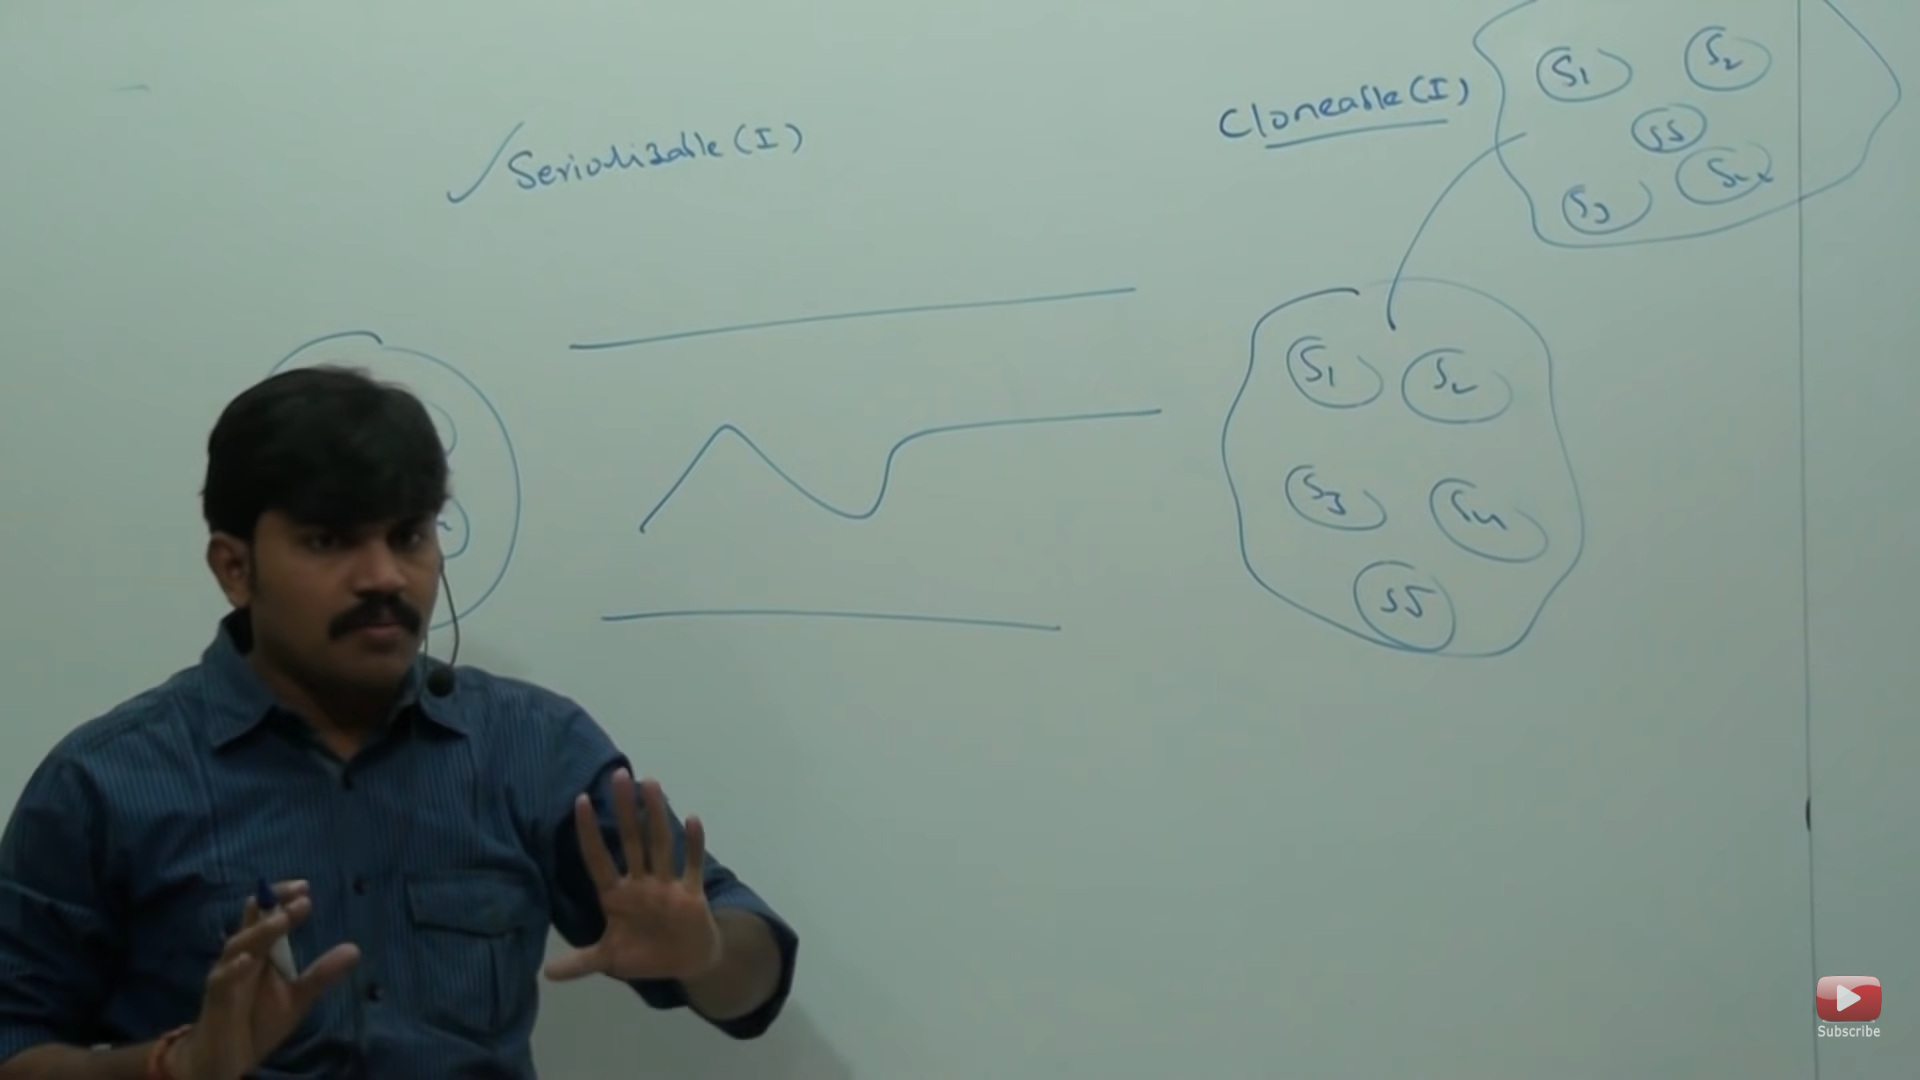 Serializable (I)
Cloneable (I)
S1
S2
S5
S3
S4
S1
S2
S3
S4
S5
Subscribe